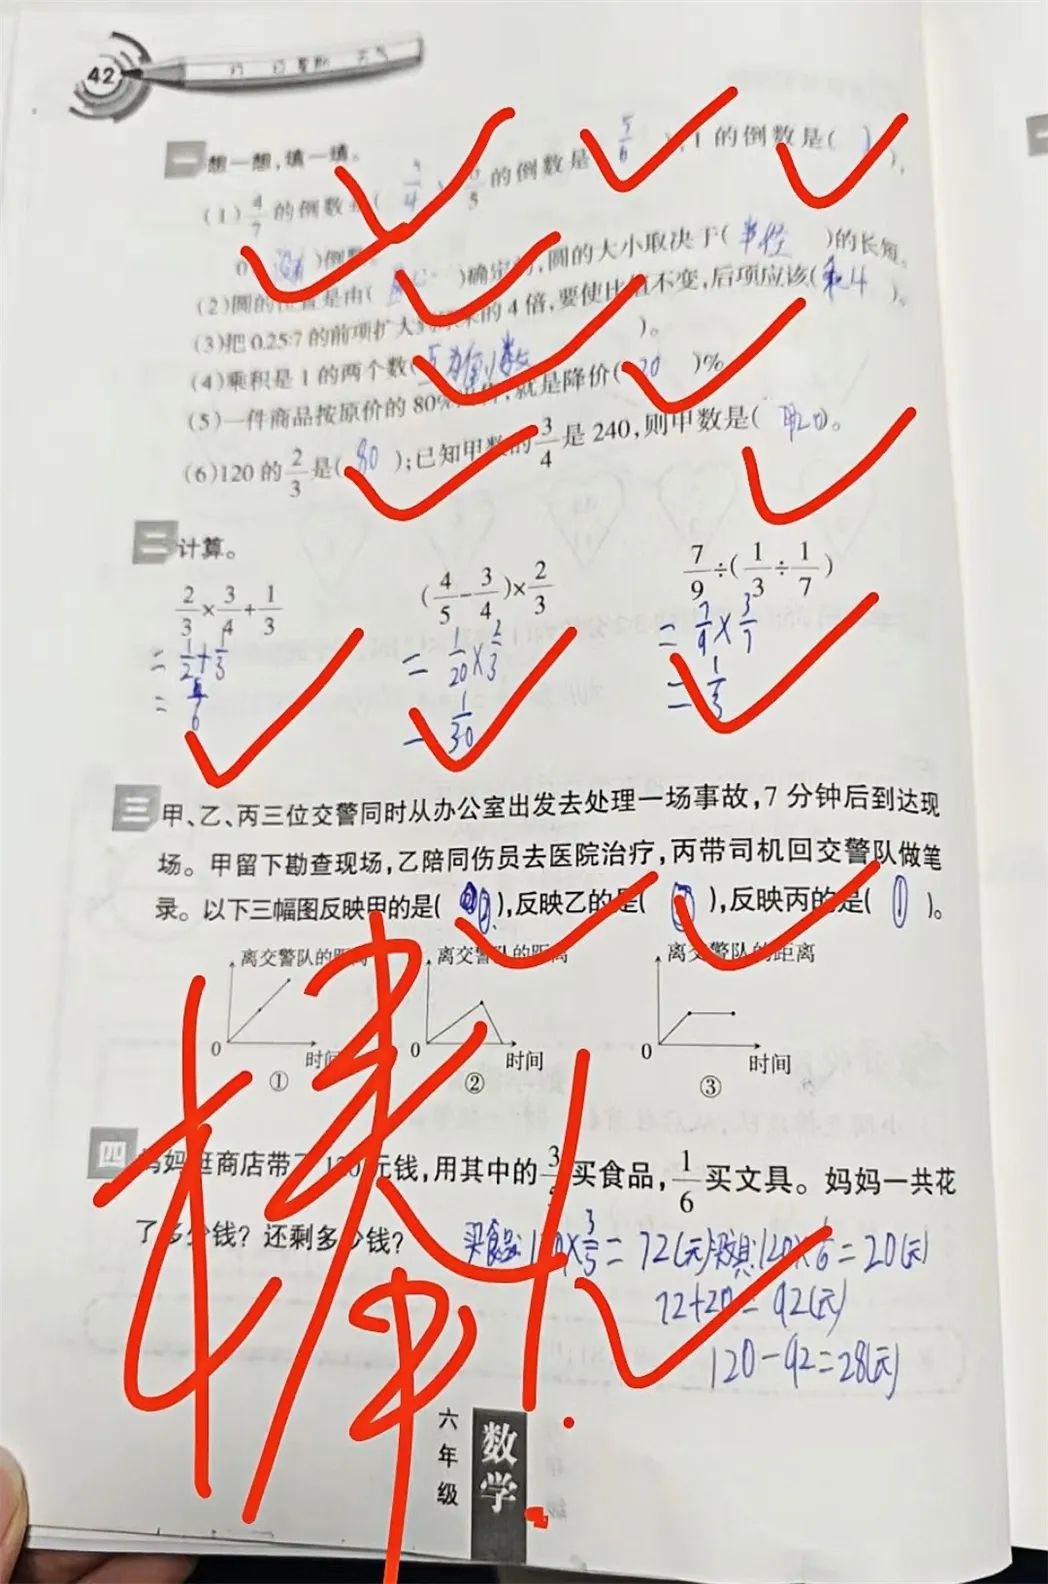 42
一 想一想,填一填。
(1) 4/7 的倒数是( 7/4 ) 6/5 的倒数是 5/6 ),1 的倒数是( 1 ),
0 没有 )倒数
(2)圆的位置是由( 圆心 )确定的,圆的大小取决于( 半径 )的长短。
(3)把 0.25:7 的前项扩大到原来的 4 倍,要使比值不变,后项应该( 乘4 )。
(4)乘积是 1 的两个数( 互为倒数 )。
(5)一件商品按原价的 80% ,就是降价( 20 )%
(6)120 的 2/3 是( 80 );已知甲数的 3/4 是 240,则甲数是( )。
二 计算。
2/3 × 3/4 + 1/3 (4/5 - 3/4) × 2/3 7/9 ÷ (1/3 ÷ 1/7)
= 1/2 + 1/3 = 1/20 × 2/3 = 7/9 × 3/7
= 5/6 = 1/30 = 1/3
三 甲、乙、丙三位交警同时从办公室出发去处理一场事故,7 分钟后到达现
场。甲留下勘查现场,乙陪同伤员去医院治疗,丙带司机回交警队做笔
录。以下三幅图反映甲的是( ② ),反映乙的是( ),反映丙的是( ① )。
离交警队的距离 离交警队的距离 离交警队的距离
0 时间 0 时间 0 时间
① ② ③
四 妈妈逛商店带了 120 元钱,用其中的 3/ 买食品, 1/6 买文具。妈妈一共花
了多少钱? 还剩多少钱? 买食品:120×3/5=72(元) 文具:120×1/6=20(元)
72+20=92(元)
120-92=28(元)
棒
六年级
数学